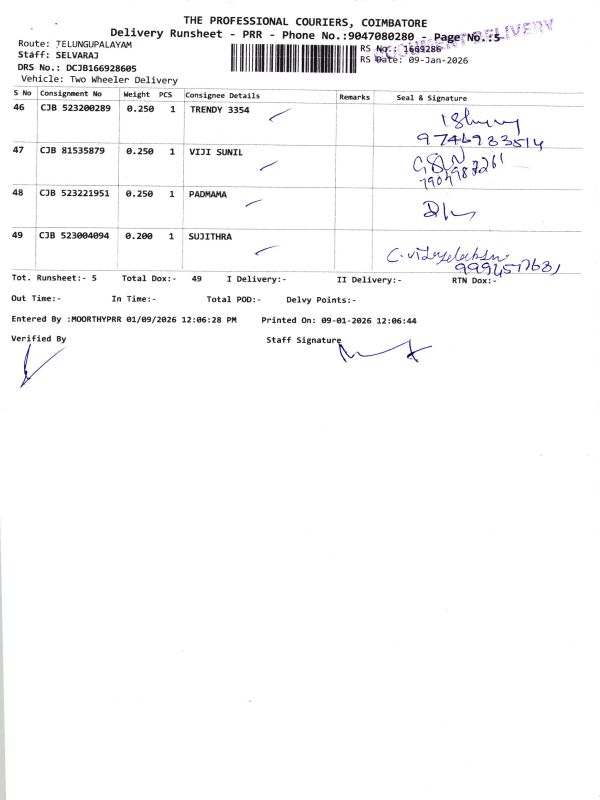 THE PROFESSIONAL COURIERS, COIMBATORE
Delivery Runsheet - PRR - Phone No.:9047080280 - Page No.:5
DOCUMENT DELIVERY
Route: TELUNGUPALAYAM
Staff: SELVARAJ
DRS No.: DCJB166928605
Vehicle: Two Wheeler Delivery
RS No.: 1669286
RS Date: 09-Jan-2026
S No Consignment No Weight PCS Consignee Details Remarks Seal & Signature
46 CJB 523200289 0.250 1 TRENDY 3354
9746983514
47 CJB 81535879 0.250 1 VIJI SUNIL
48 CJB 523221951 0.250 1 PADMAMA
49 CJB 523004094 0.200 1 SUJITHRA
Tot. Runsheet:- 5 Total Dox:- 49 I Delivery:- II Delivery:- RTN Dox:-
Out Time:- In Time:- Total POD:- Delvy Points:-
Entered By :MOORTHYPRR 01/09/2026 12:06:28 PM Printed On: 09-01-2026 12:06:44
Verified By Staff Signature